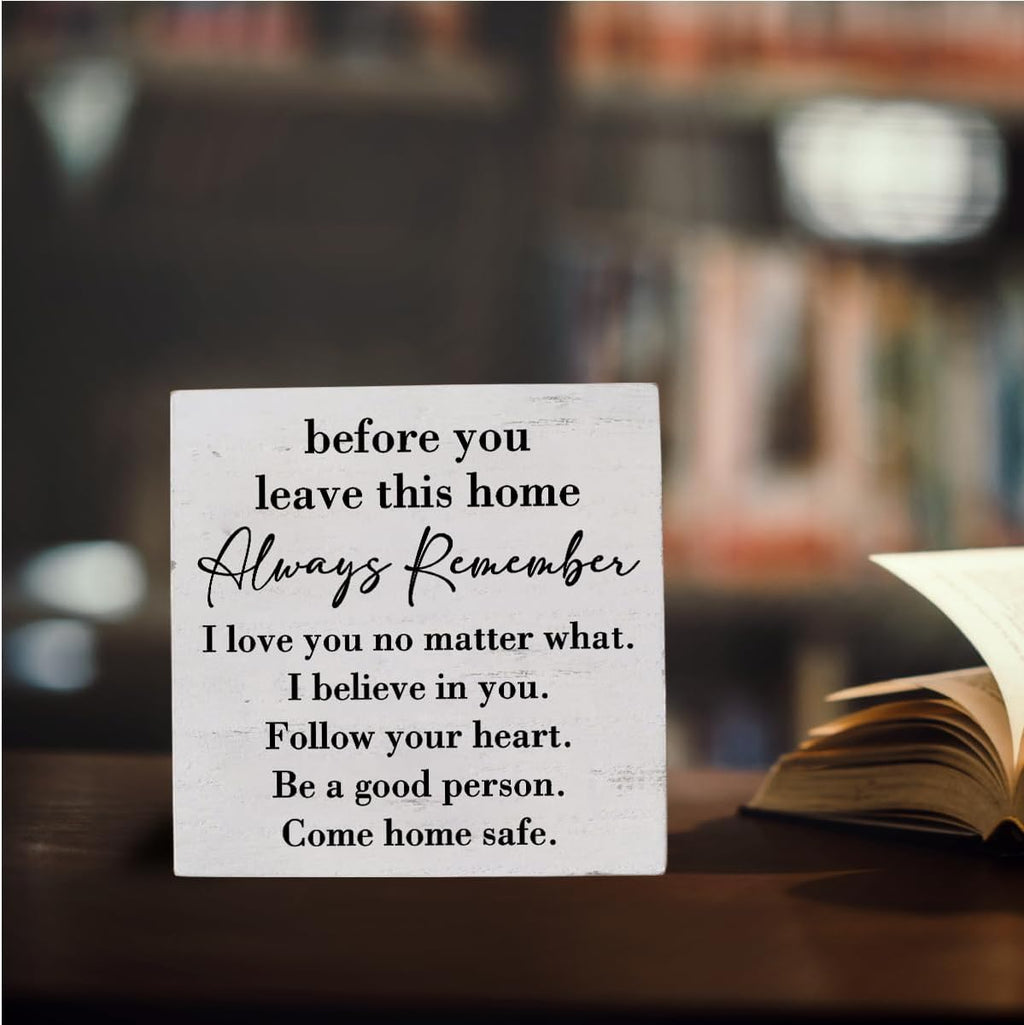 before you
leave this home
Always Remember
I love you no matter what.
I believe in you.
Follow your heart.
Be a good person.
Come home safe.